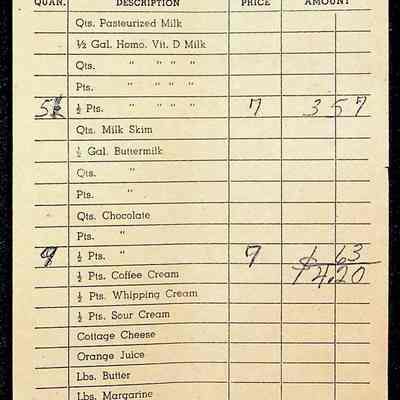 QUAN. DESCRIPTION PRICE AMOUNT
Qts. Pasteurized Milk
½ Gal. Homo. Vit. D Milk
Qts. " " " "
Pts. " " " "
½ Pts. " " " " 7 3 57
Qts. Milk Skim
½ Gal. Buttermilk
Qts. "
Pts. "
Qts. Chocolate
Pts. "
9 ½ Pts. " 7 63
½ Pts. Coffee Cream $4.20
½ Pts. Whipping Cream
½ Pts. Sour Cream
Cottage Cheese
Orange Juice
Lbs. Butter
Lbs. Margarine